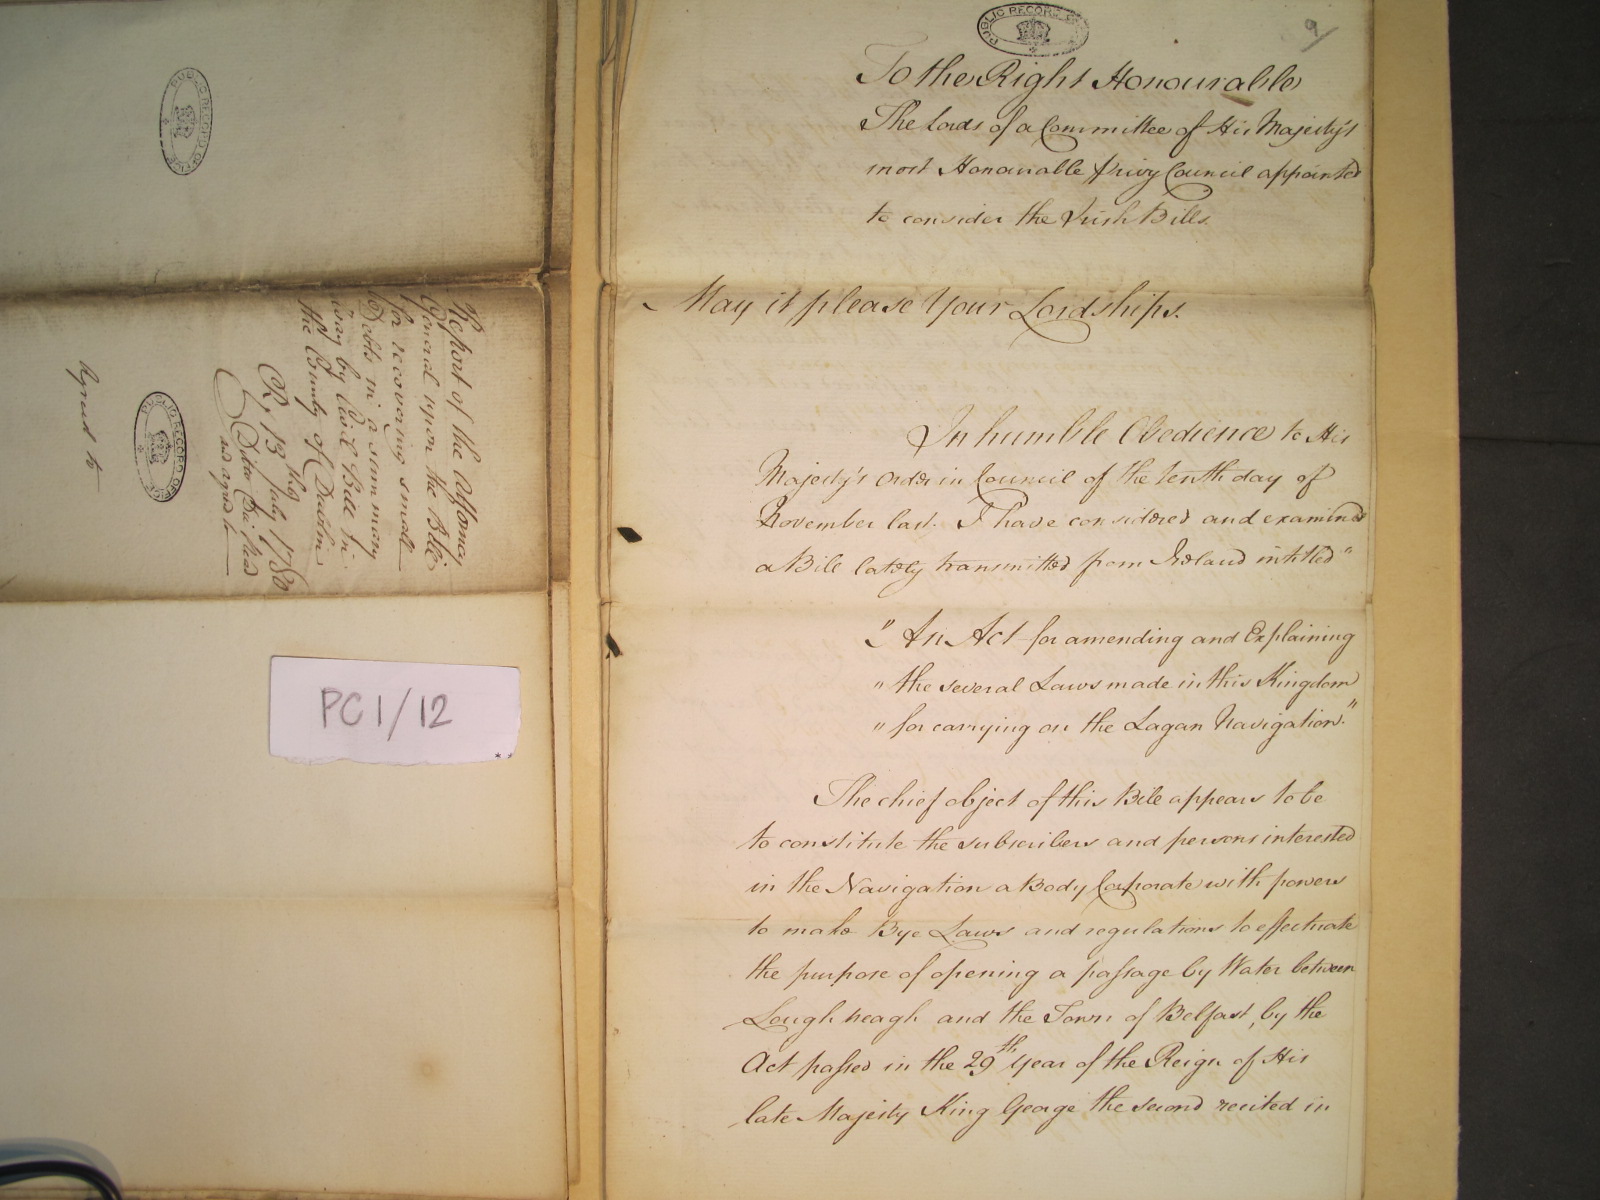 PUBLIC RECORD OFFICE
Report of the Attorney
General upon the Bill
for recovering small
Debts in a summary
way by Civil Bill in
the County of Dublin
July 1780
and agreed to
Agreed to
PUBLIC RECORD OFFICE
PC1/12
PUBLIC RECORD OFFICE
9/
To the Right Honourable
The Lords of a Committee of His Majesty's
most Honourable Privy Council appointed
to consider the Irish Bills.
May it please Your Lordships.
In humble Obedience to His
Majesty's Order in Council of the tenth day of
November last. I have considered and examined
a Bill lately transmitted from Ireland intitled "
" An Act for amending and Explaining
" the several Laws made in this Kingdom
" for carrying on the Lagan Navigation."
The chief object of this Bill appears to be
to constitute the subscribers and persons interested
in the Navigation a Body Corporate with powers
to make Bye Laws and regulations to effectuate
the purpose of opening a passage by Water between
Lough neagh and the Town of Belfast, by the
Act passed in the 29th year of the Reign of His
late Majesty King George the second recited in